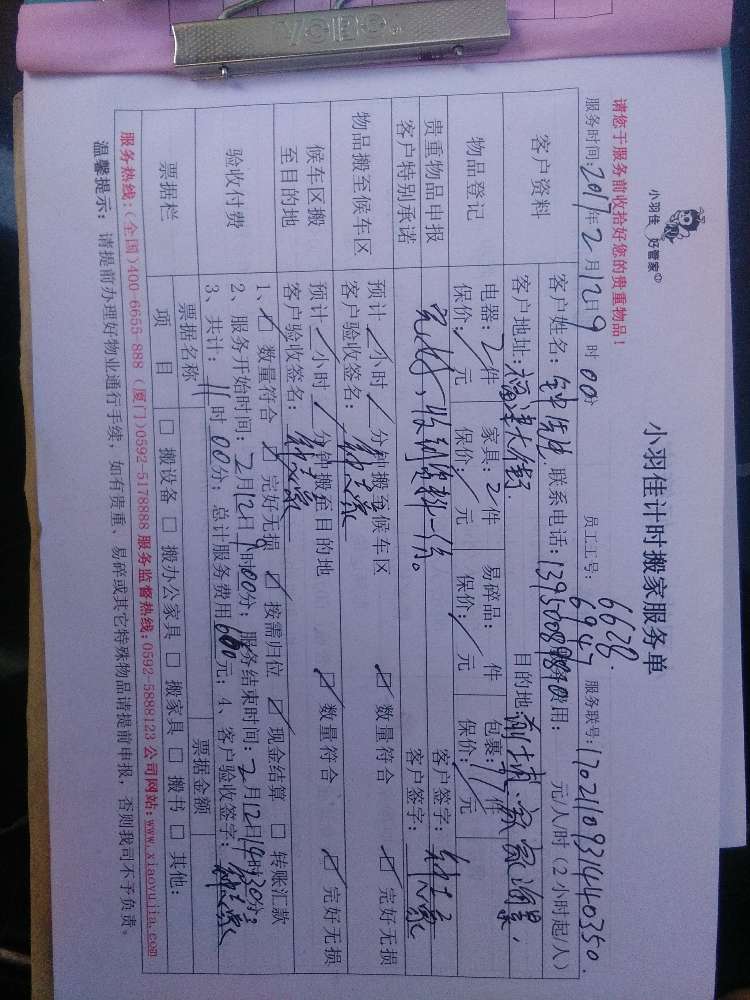 小羽佳 好管家
小羽佳计时搬家服务单
请您于服务前收拾好您的贵重物品！
员工工号：6628. 6947 服务联号：17021109314440350.
服务时间：2017年2月12日9时00分
客户资料
客户姓名： 联系电话： 服务费用： 元/人/时（2小时起/人）
客户地址：福津大街 目的地：
物品登记
电器：2件 家具：2件 易碎品： 件 包裹： 件
保价：/元 保价：/元 保价：/元 保价：/元
贵重物品申报
客户签字：
客户特别承诺
完好，收到资料一份。
客户签字：
物品搬至候车区
预计/小时/分钟搬至候车区 ☑ 数量符合 ☑ 完好无损
客户验收签名：
候车区搬至目的地
预计/小时/分钟搬至目的地 ☑ 数量符合 ☑ 完好无损
客户验收签名：
验收付费
1、☑ 数量符合 ☑ 完好无损 ☑ 按需归位 ☑ 现金结算 □ 转账汇款
2、服务开始时间：2月12日9时00分；服务结束时间：2月12日14时30分；
3、共计：11时00分；总计服务费用660元；4、客户验收签字：
票据栏
票据名称 票据金额
项目 □ 搬设备 □ 搬办公家具 □ 搬家具 □ 搬书 □ 其他：
服务热线：（全国）400 6655 888（厦门）0592-5178888 服务监督热线：0592-5888123 公司网站：www.xiaoyujia.com
温馨提示：请提前办理好物业通行手续，如有贵重、易碎或其它特殊物品请提前申报，否则我司不予负责。